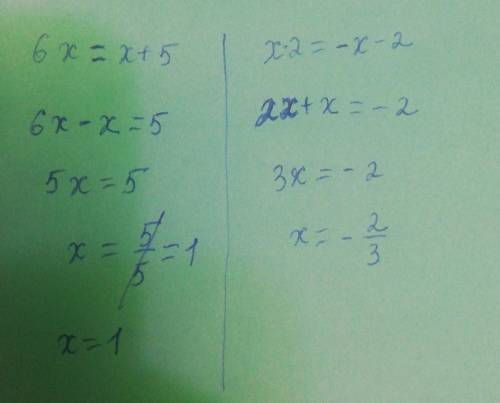 6x = x + 5
6x - x = 5
5x = 5
x = 5/5 = 1
x = 1
x·2 = -x - 2
2x + x = -2
3x = -2
x = - 2/3